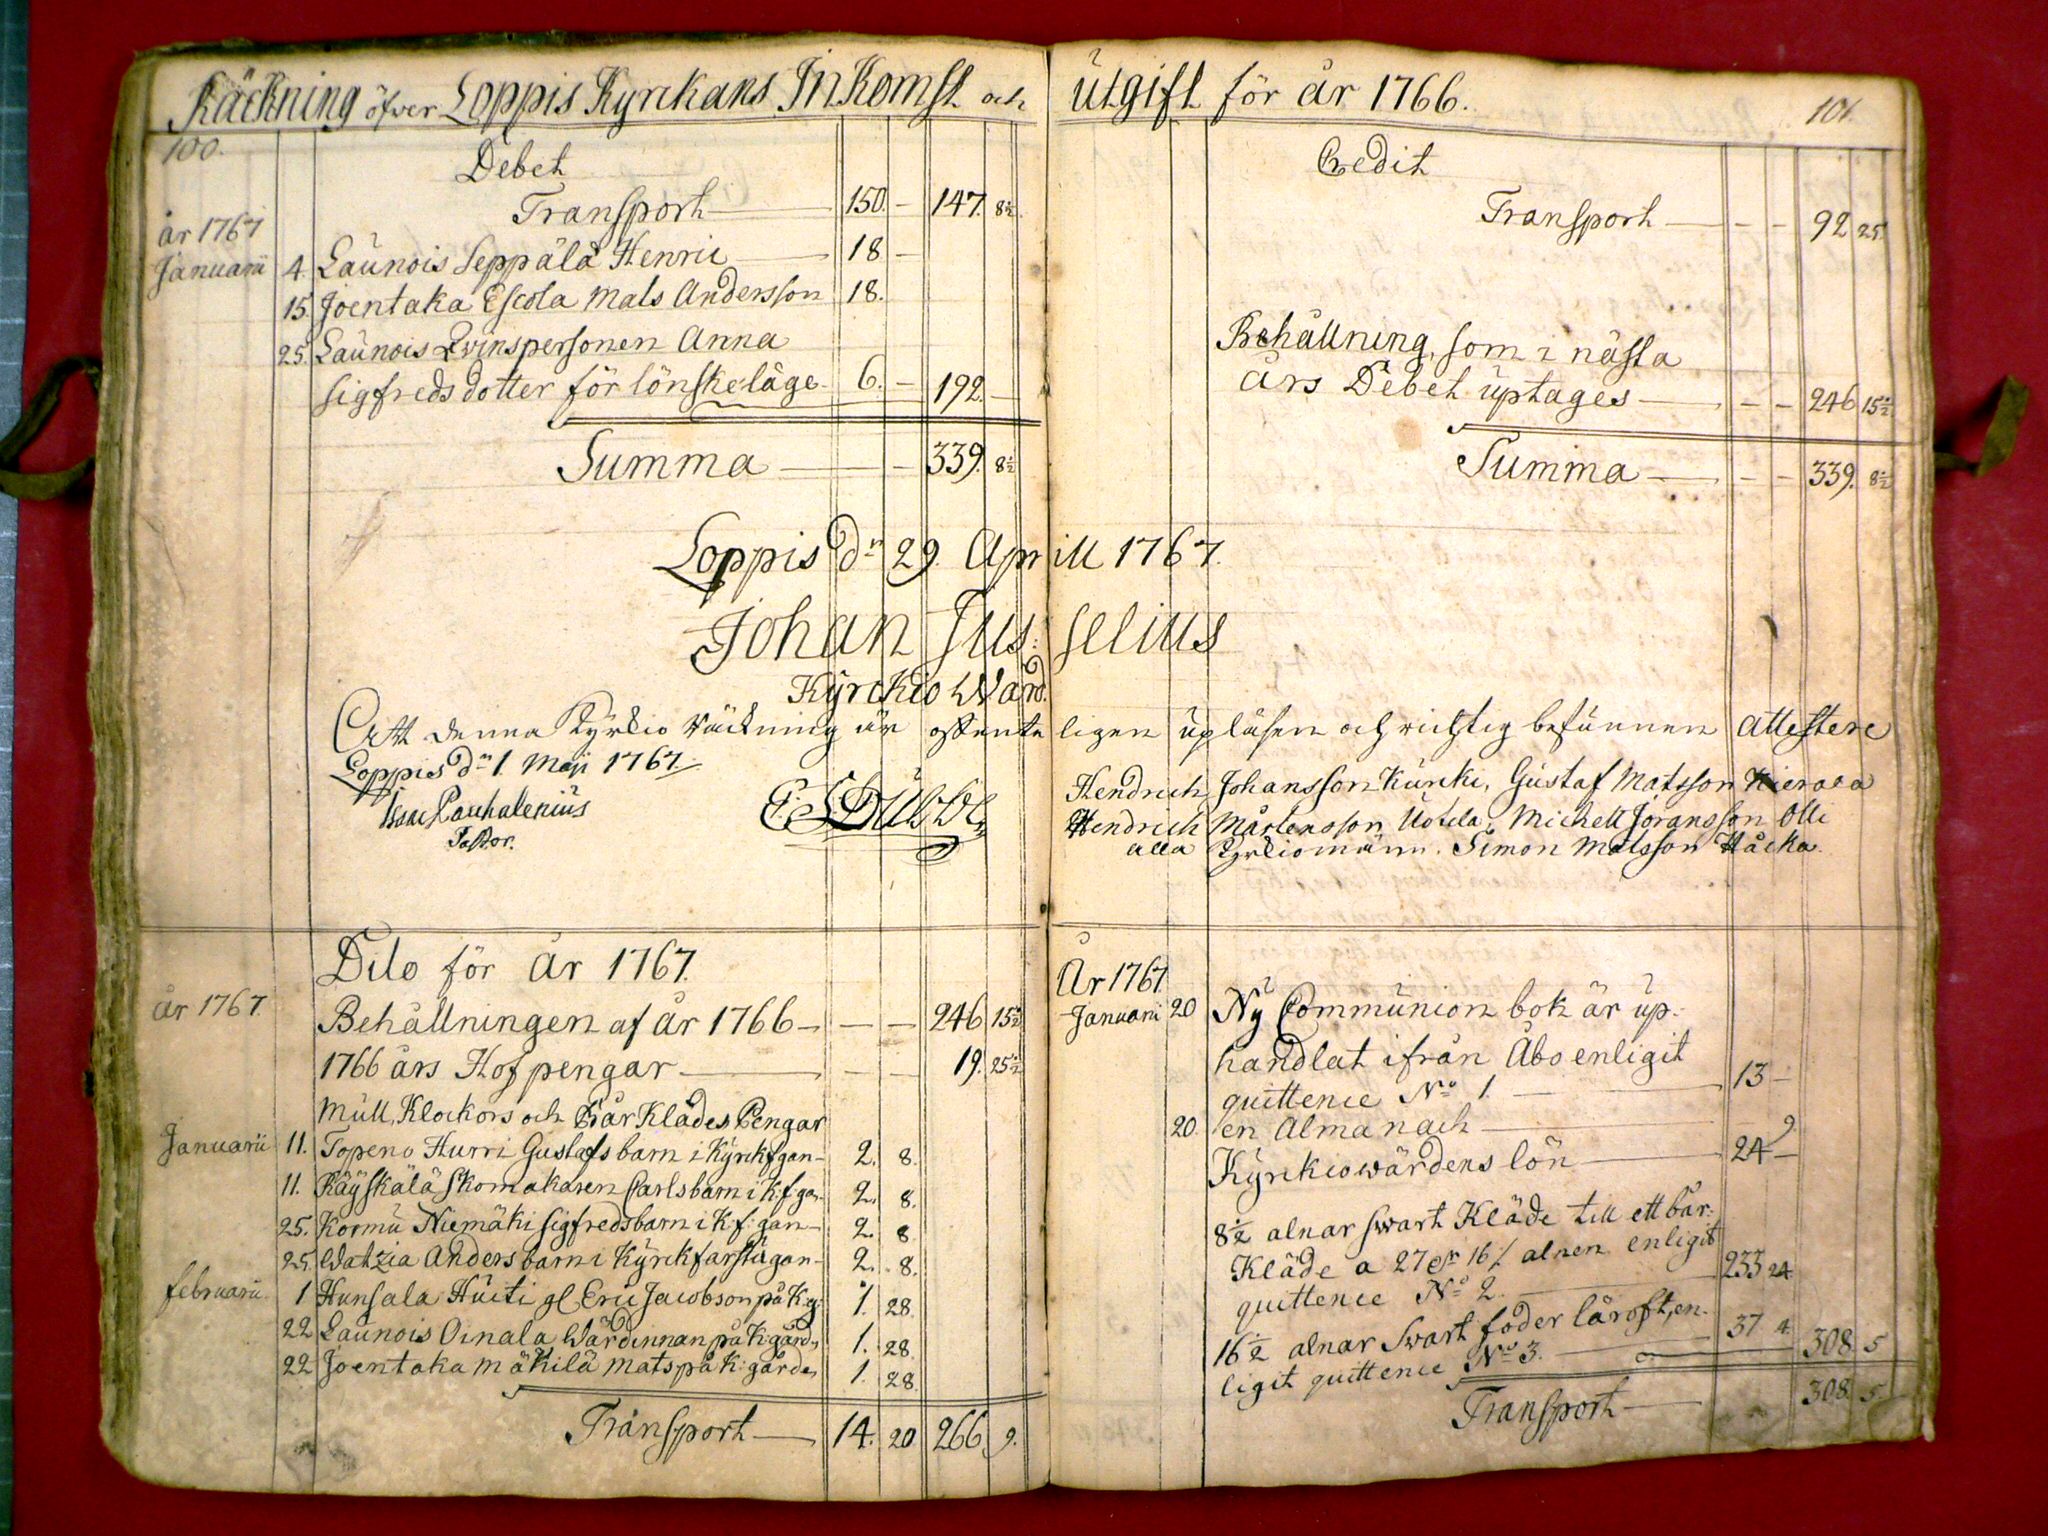 Räckning öfver Loppis Kyrckans Inkomst och
100.
Debet
Transport 150. — 147. 8½.
år 1767
Januarii 4. Launois Seppälä Henric 18 —
15. Joentaka Escola Mats Andersson 18.
25. Launois Qvinspersonen Anna
Sigfredsdotter för lönskeläge 6. — 192. —
Summa — 339. 8½
utgift för år 1766.
101.
Credit
Transport — — — 92 25.
Behållning, som i nästa
års Debet uptages — — — 246 15½
Summa — — — 339. 8½
Loppis dn 29. Aprill 1767.
Johan Jus: selius
Kyrckio Wärd.
Att denna Kyrkio räckning är offenteligen upläsen och richtig befunnen attestere
Loppis dn 1. Maji 1767.
Isaac Pauhalenius
Pastor.
Hendrich Johansson Kurcki, Gustaf Matsson Kierara
Hendrich Mårtensson Uotila, Michell Jöransson Olli
alla Kyrkiomänn. Simon Matsson Håcka.
Dito för år 1767.
år 1767 Behållningen af år 1766 — — — 246 15½
1766 års Hofpengar — — — 19. 25½
Mull, Klockors och Bår Klädes Pengar
Januarii 11. Topeno Hurri Gustafs barn i Kyrckfgan— 2. 8.
11. Räyskälä Skomakaren Carls barn i K:f:gan 2. 8.
25. Kormu Niemäki Sigfreds barn i K:f:gan— 2. 8
25. Watzia Anders barn i Kyrckfarstugan— 2. 8.
februarii 1 Hunsala Huiti gl Eric Jacobson på K:g: 1. 28.
22 Launois Oinala Wärdinnan på K:gård, 1. 28.
22 Joentaka Mäkilä Mats på K:gårde, 1. 28.
Transport — 14. 20 266 9.
År 1767
Januarii 20 Ny Communion bok är up-
handlat ifrån Åbo enligit
quittence No 1. — 13 —
20. en Almanach — 9.
Kyrckiowärdens lön — 24 —
8½ alnar Swart Kläde till ett bår-
Kläde a 27 dr 16/ alnen enligit
quittence No 2. — 233 24
16½ alnar Swart foder läroft, en-
ligit quittence No 3. — 37 4. 308. 5
Transport — 308. 5.